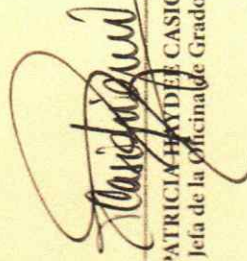 PATRICIA HAYDEE CASIO
Jefa de la Oficina de Grado